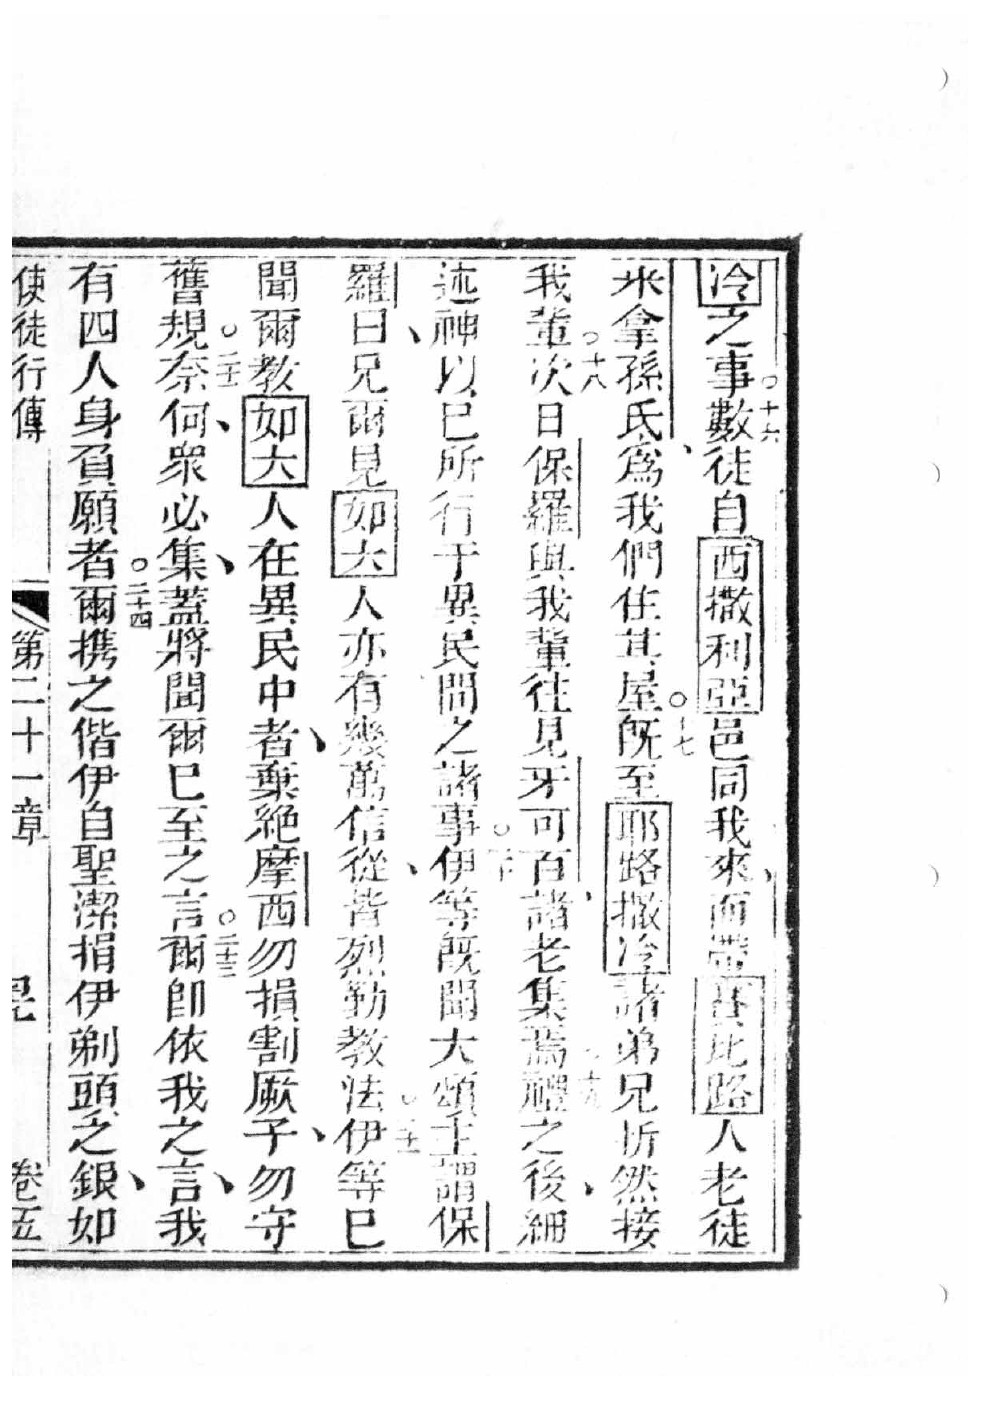 冷之事○十六數徒自西撒利亞邑同我來而帶居比路人老徒
米拿孫氏爲我們住其屋○十七既至耶路撒冷諸弟兄忻然接
我輩○十八次日保羅與我輩往見牙可百諸老集焉○十九禮之後細
述神以己所行于異民間之諸事○二十伊等既聞大頌主謂保
羅曰兄爾見如大人亦有幾萬信從皆烈勤教法○二十一伊等已
聞爾教如大人在異民中者棄絶摩西勿損割厥子勿守
舊規○二十二奈何衆必集蓋將聞爾已至之言○二十三爾即依我之言我
有四人身負願者○二十四爾携之偕伊自聖潔捐伊剃頭之銀如
使徒行傳 第二十一章 卷五